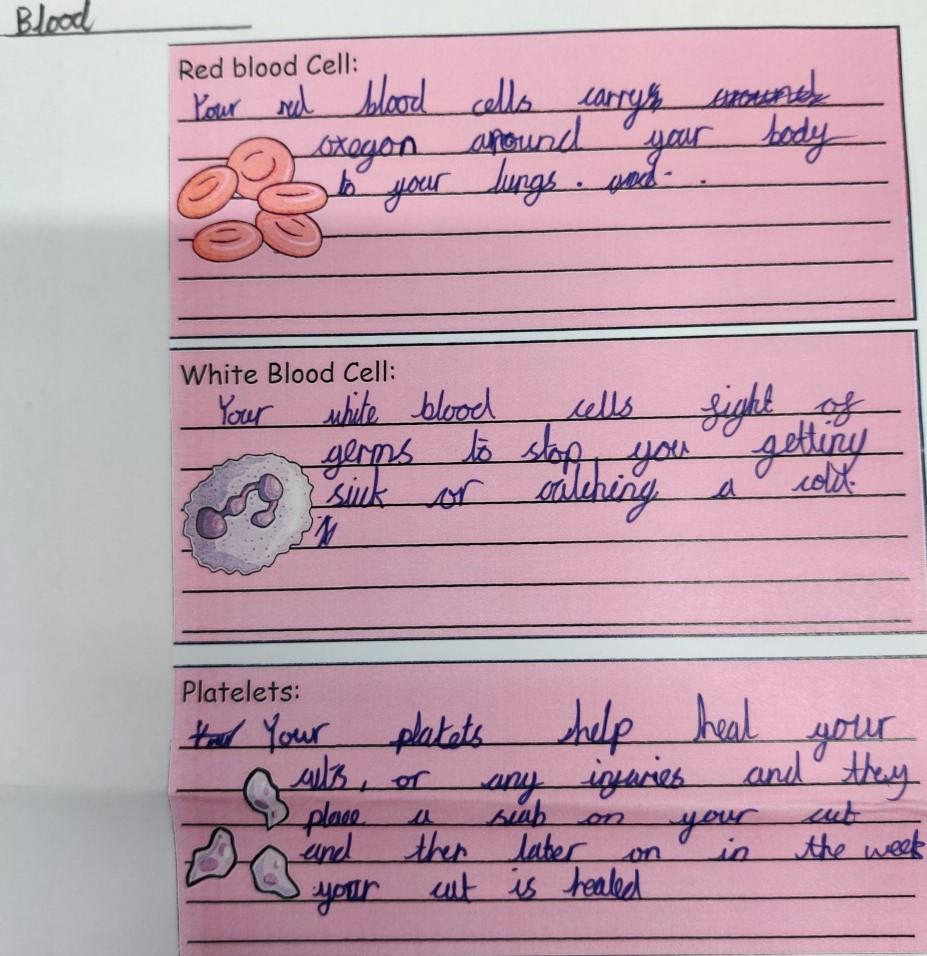 Blood
Red blood Cell:
Your red blood cells carry
oxegon around your body
to your lungs.
White Blood Cell:
Your white blood cells fight of
germs to stop you getting
sick or catching a cold.
Platelets:
Your platets help heal your
cuts, or any injuries and they
place a scab on your cut
and then later on in the week
your cut is healed